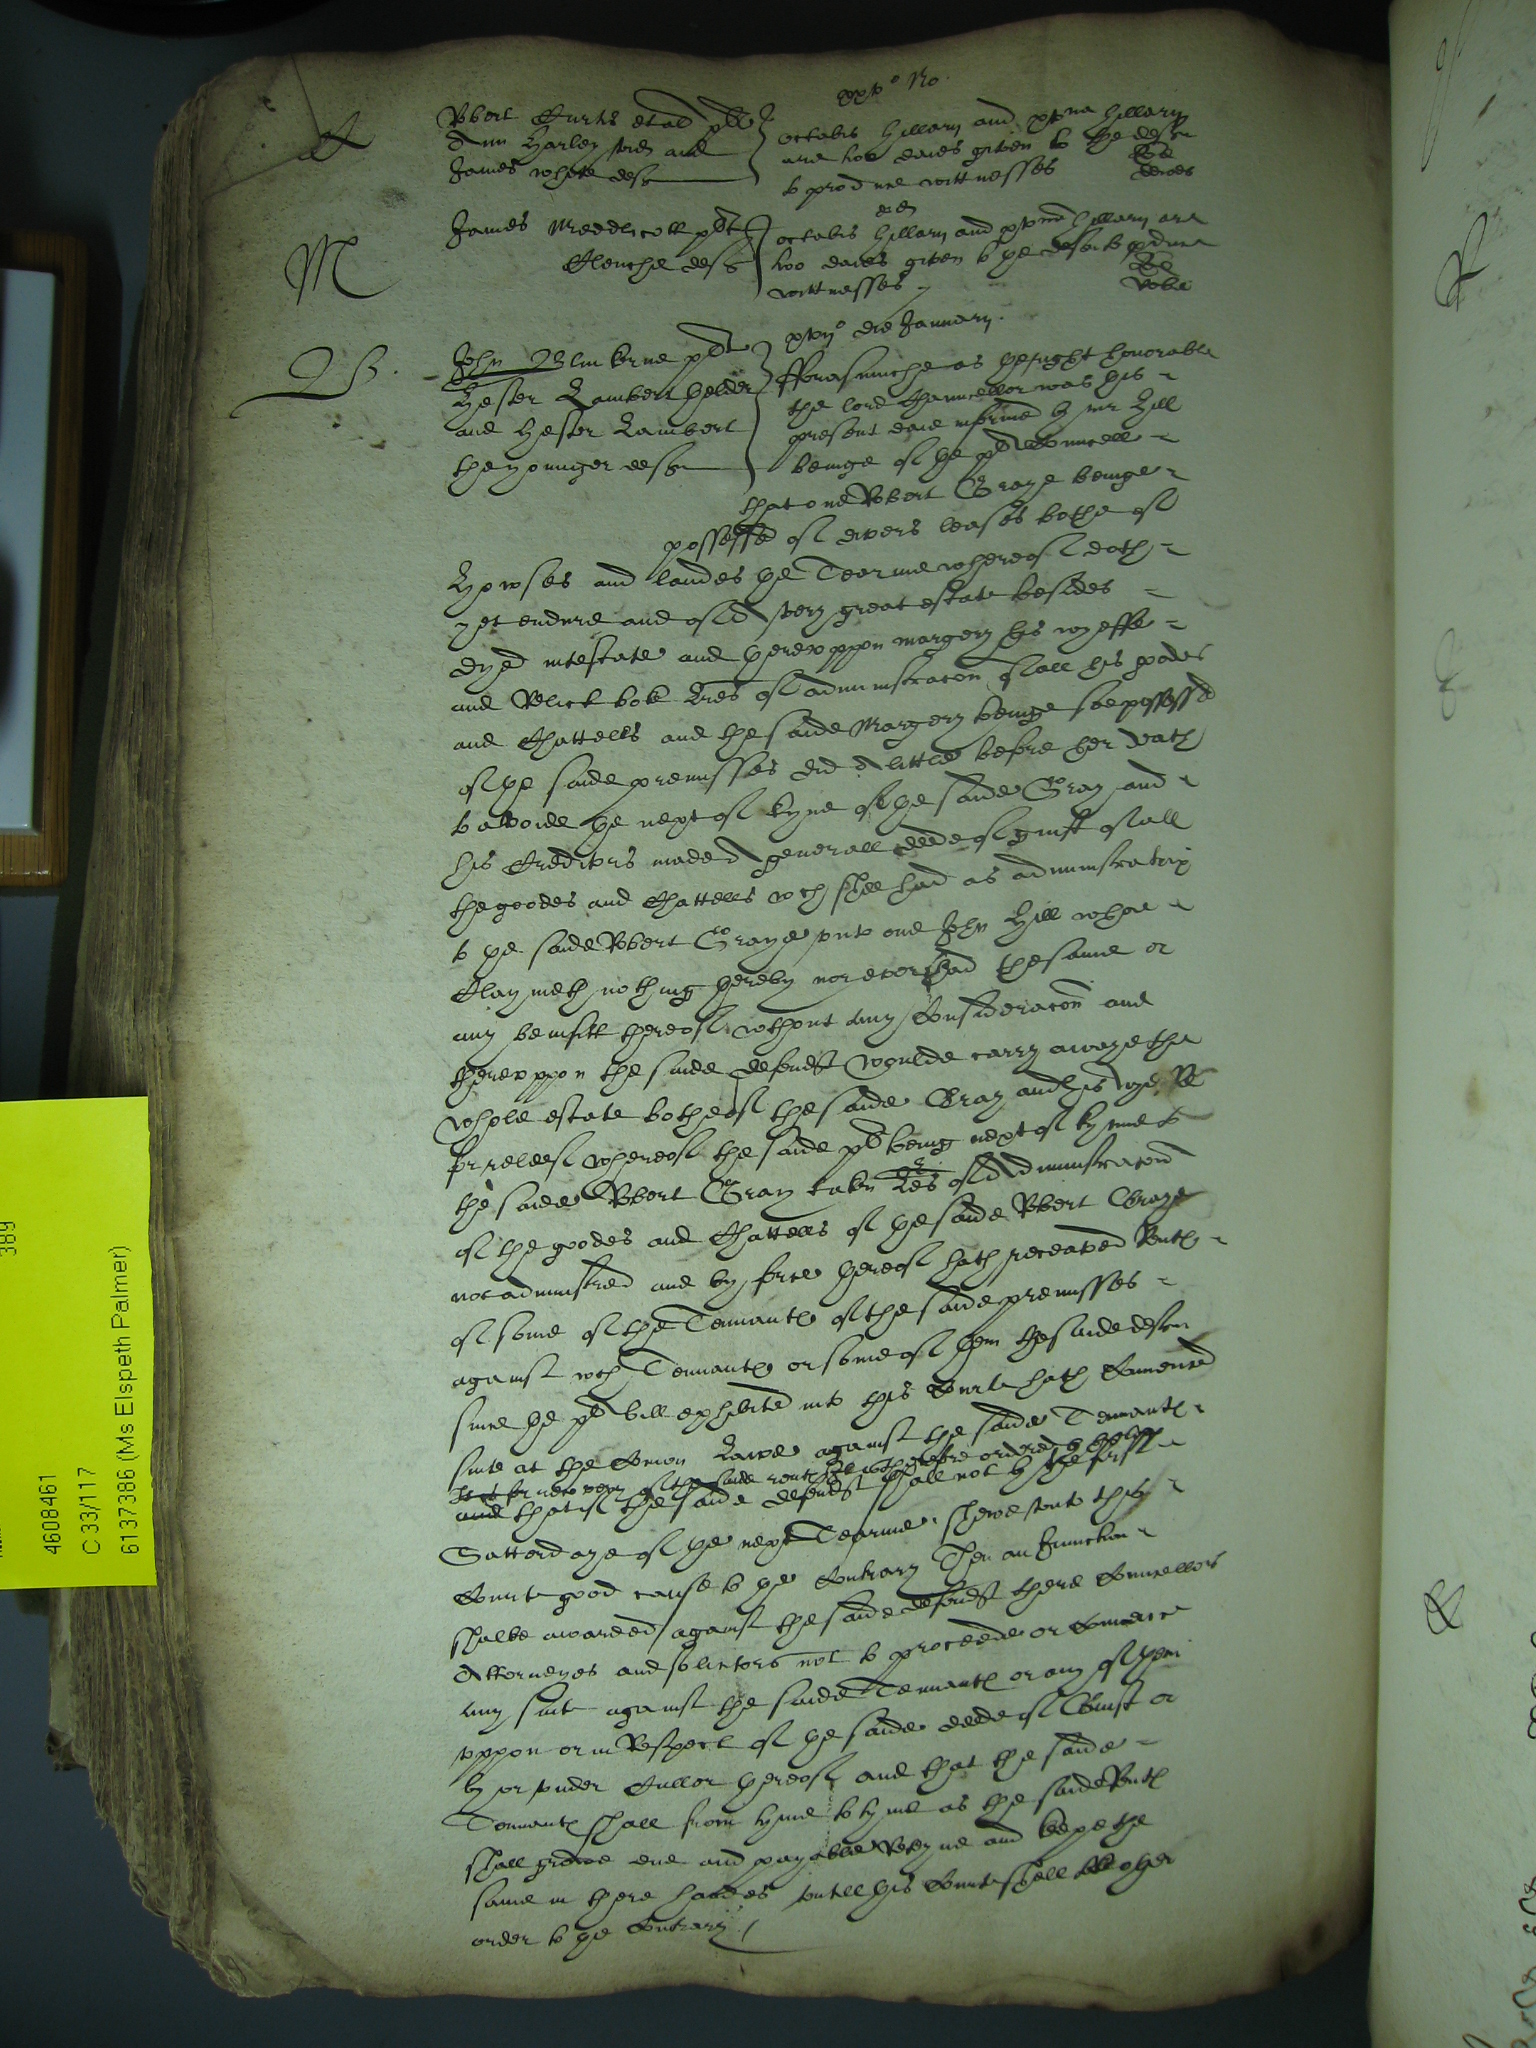 C
Robert Curtis et al plt
Ann Harley and
James White deftes
octabis Hillarij and Hillarij
are two daies given to the deften
to produce wittnesses
M
James Meddlicott plt
Clenche deft
octabis Hillarij and Hillarij are
two daies given to the deft to produce
wittnesses
B.
die Januarij.
John Blinkorne plt
Hester Lambert thelder
and Hester Lambert
the younger deften
Fforasmuche as the right honorable
the lord Chauncellor was this
present daie informed by mr Hill
beinge of the plts Councell
that one Robert Graye beinge
possessed of divers leases bothe of
howses and landes the Tearme whereof doth
yet endure and of a very great estate besides
dyed intestate and therevppon margery his wyeffe
and Relict toke Lres of administracon of all his goodes
and Chattells and the saide Margery beinge soe possessed
of the saide premisses did a little before her death
to avoide the next of kyne of the saide Gray and
his Creditors made a generall deede of guift of all
the goodes and Chattells wch shee had as administratrix
to the saide Robert Graye vnto one John Hill whoe
Claymeth nothing thereby nor ever had the same or
any benifitt thereof without any Consideracon and
therevppon the saide defendt woulde carry awaye the
whole estate bothe of the saide Gray and his wyeffe
for releef whereof the saide plt being next of kynne to
the saide Robert Gray taken Lres of Administracon
of the goodes and Chattells of the saide Robert Graye
not administred and by force thereof hath receaved Rents
of some of the Tennants of the saide premisses
against wch Tennants or some of them the saide deften
since the plts bill exhibited into this Courte hath Comenced
suite at the Comon Lawe against the saide Tennants
for recovery of the saide rents It is therefore ordered
that if the saide defendt shall not by the first
Satterdaye of the next Tearme shewe vnto this
Courte good cause to the Contrary Then an Iniunction
shalbe awarded against the saide defendt there Councellors
Attorneyes and solicitors not to proceede or Comence
any suite against the saide Tennants or any of them
vppon or in Respect of the saide deede of Guift or
by or vnder Cullor thereof and that the saide
Tennants shall from tyme to tyme as the saide Rents
shall growe due and payable Reteyne and keepe the
same in there handes vntill this Courte shall take other
order to the Contrary
389
4608461
C 33/117
6137386 (Ms Elspeth Palmer)